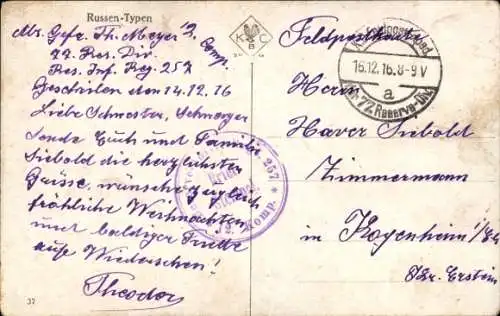 Russen-Typen
Abs. Gefr. Th. Meyer 12. Comp.
77. Res. Div.
Res. Inf. Reg. 257
Geschrieben den 14.12.16
Liebe Schwester, Schwager
sende Euch und Familie
Siebold die herzlichsten
Grüsse, wünsche zugleich
fröhliche Weihnachten
und baldiger Friede
aufs Wiedersehen!
Theodor
37
K C
B
Feldpostkarte
16.12.16.8-9V
a
der 77. Reserve-Div.
257
Brief
12. Komp.
Herrn
Xaver Siebold
Zimmermann
in Kogenheim i/Els
Kr. Erstein